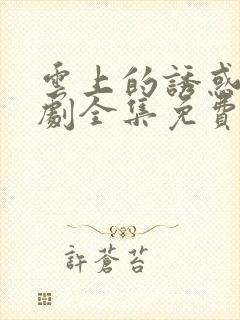 雲上的誘惑
劇全集免費
許蒼苔